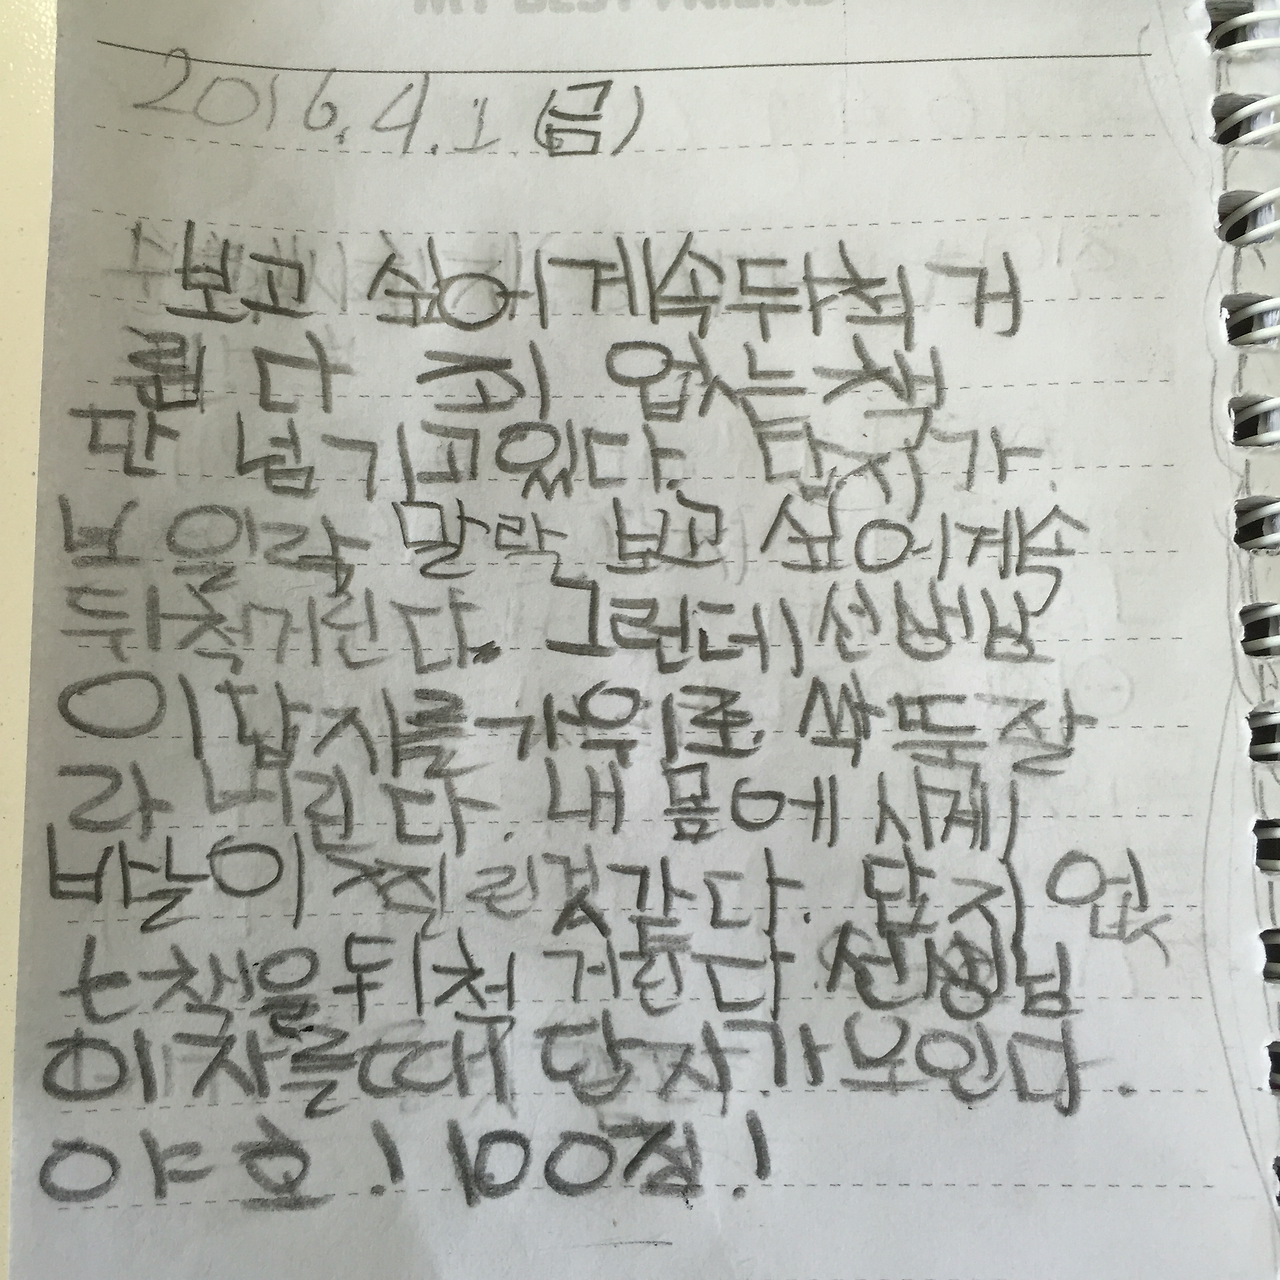 MY BEST FRIEND
2016.4.1 (금)
보고 싶어 계속 두척 거
린다 죄 없는 책
만 넘기고있다. 답지가
보일락 말락 보고 싶어 계속
뒤척거린다. 그런데 선생님
이 답지를 가위로 싹뚝 잘
라 버린다. 내 몸에 시계
바늘이 찔린것같다. 답지 없
는 책을 뒤척 거린다 선생님
이 자를때 답지가 보인다.
야호! 100점!